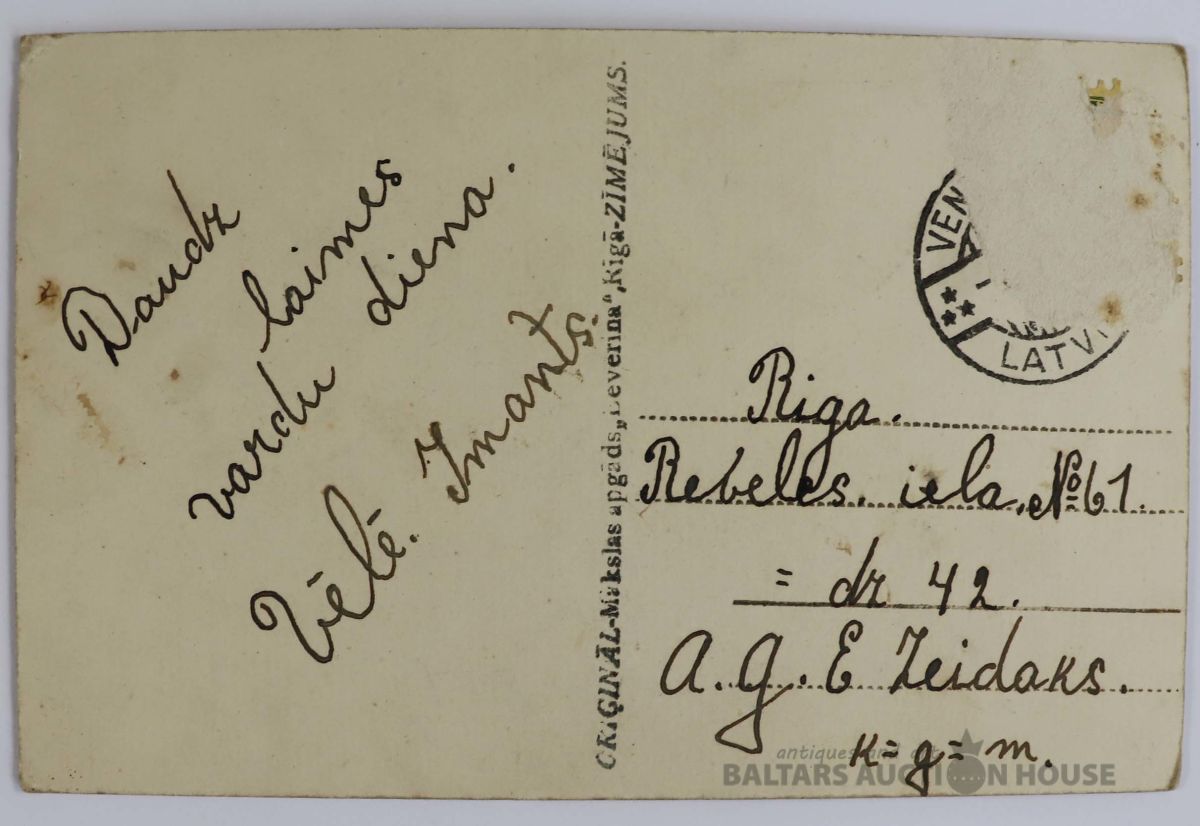 Daudz
laimes
vardu diena.
Vēlē. Imants.
ORIĢINĀL-Mākslas apgāds „Leverina“, Rīgā-ZĪMĒJUMS.
VEN
LATVI
Riga.
Rebeles. iela. № 61.
= dz 42.
A. G. E Zeidaks.
K = g = m.
antiques and art
BALTARS AUCTION HOUSE